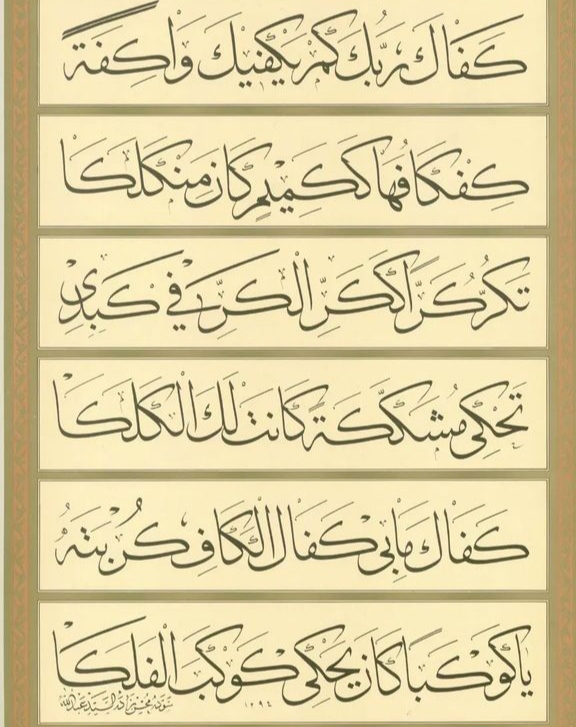 كَفَاكَ رَبُّكَ كَمْ يَكْفِيكَ وَاكِفَةً
كِفْكَافُهَا كَكَمِينٍ كَانَ مِنْ كَلَكَا
تَكِرُّ كَرًّا كَكَرِّ الْكَرِّ فِي كَبَدِي
تَحْكِي مُشَكْشَكَةً كَانَتْ لَكَ الْكَلَكَا
كَفَاكَ مَا بِي كَفَاكَ الْكَافِ كُرْبَتَهُ
يَا كَوْكَبًا كَانَ يَحْكِي كَوْكَبَ الْفَلَكَا
١٢٩٤